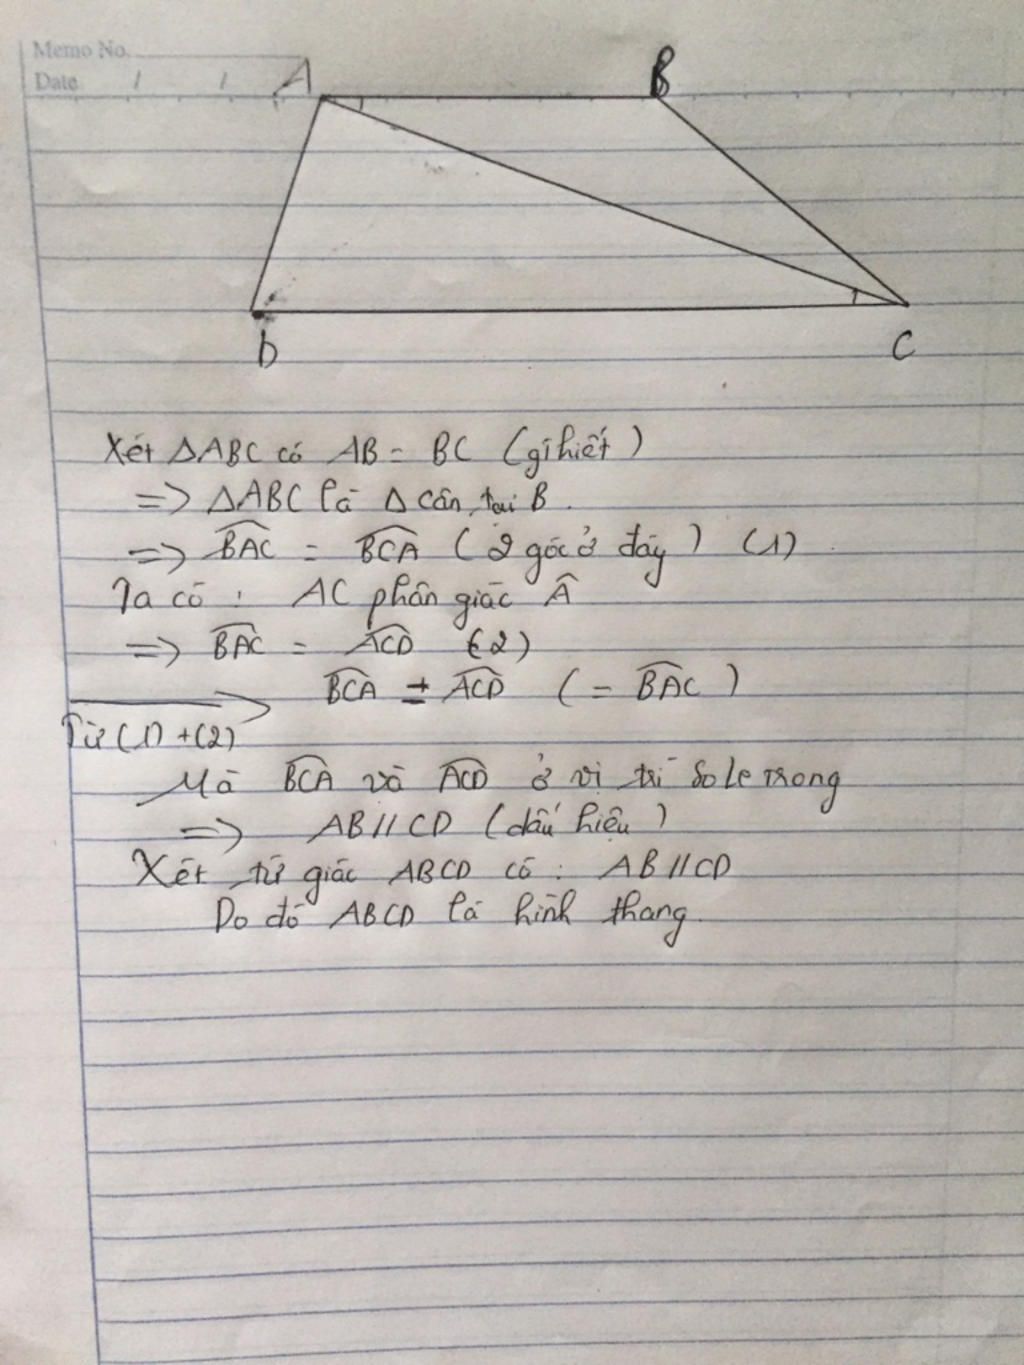 Memo No.
Date / /
A B
D C
Xét ΔABC có AB = BC (gt)
=> ΔABC là Δ cân tại B.
=> \widehat{BAC} = \widehat{BCA} (2 góc ở đáy) (1)
Ta có : AC phân giác Â
=> \widehat{BAC} = \widehat{ACD} (2)
\widehat{BCA} = \widehat{ACD} (= \widehat{BAC})
Từ (1) + (2)
Mà \widehat{BCA} và \widehat{ACD} ở vị trí so le trong
=> AB // CD (dấu hiệu)
Xét tứ giác ABCD có : AB // CD
Do đó ABCD là hình thang.